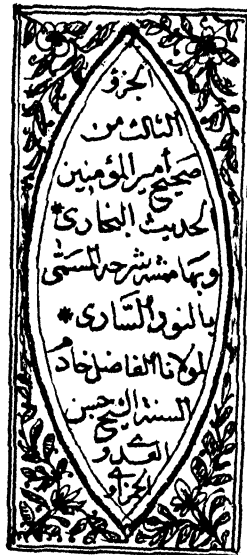 الجزؤ
الثالث من
صحيح أمير المؤمنين
الحديث البخاري *
وبهامشه شرحه المسمى
بالنور الساري *
لمولانا الفاضل خادم
السنة الشيخ حسن
العدوي
الحمزاوي